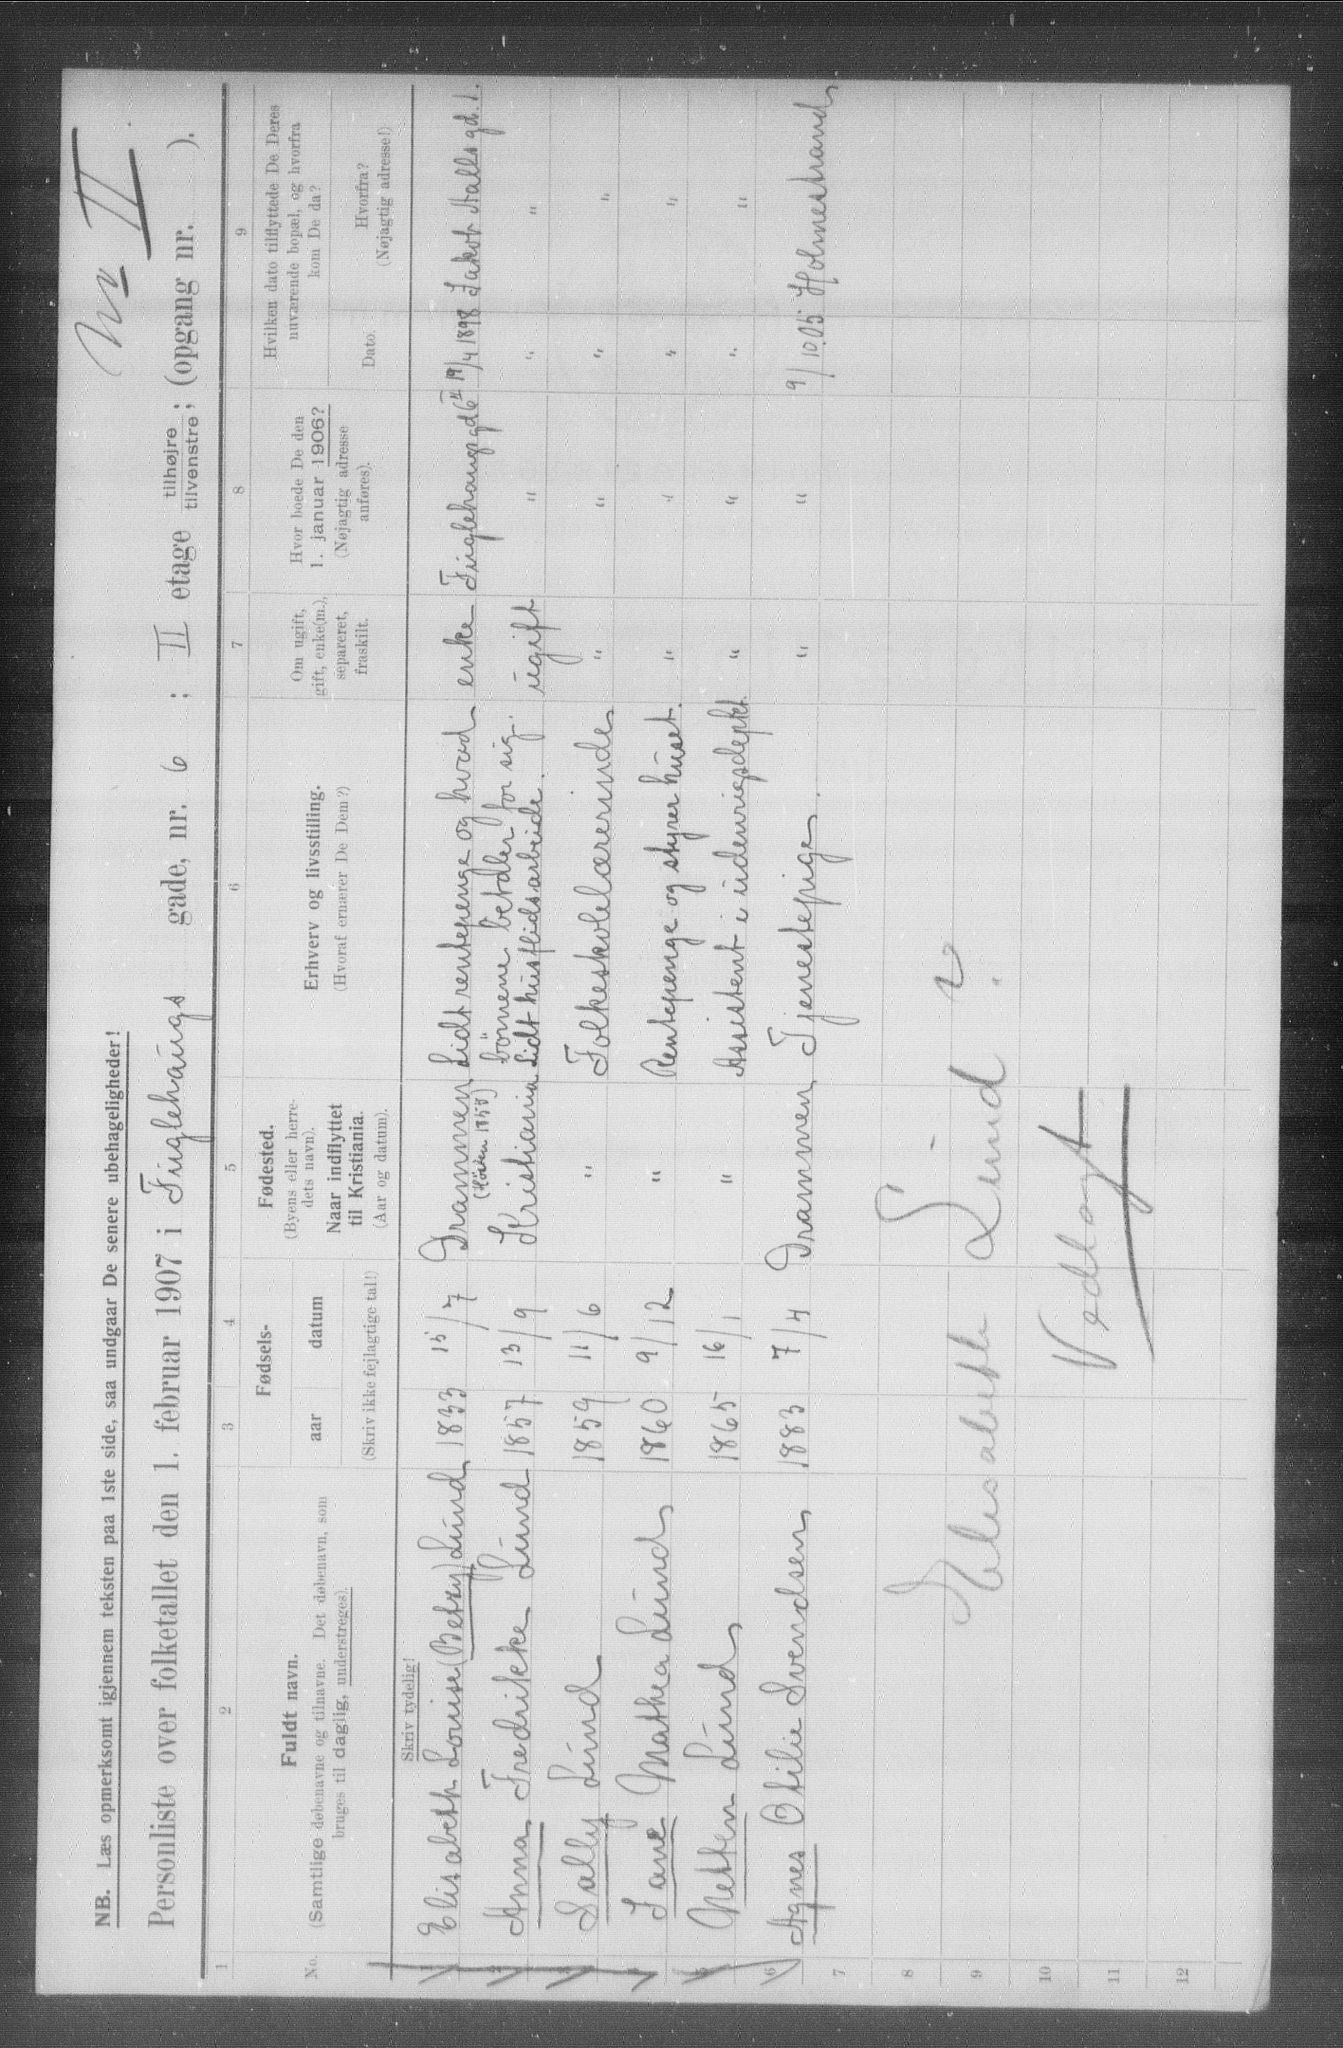 No II
NB. Læs opmerksomt igjennem teksten paa 1ste side, saa undgaar De senere ubehageligheder!
Personliste over folketallet den 1. februar 1907 i Fuglehaugs gade, nr. 6 ; II etage tilhøjre tilvenstre; (opgang nr. ).
1 2 3 4 5 6 7 8 9
No.
Fuldt navn.
(Samtlige døbenavne og tilnavne. Det døbenavn, som
bruges til daglig, understreges).
Fødsels-
aar datum
(Skriv ikke fejlagtige tal!)
Fødested.
(Byens eller herre-
dets navn).
Naar indflyttet
til Kristiania.
(Aar og datum).
Erhverv og livsstilling.
(Hvoraf ernærer De Dem?)
Om ugift,
gift, enke(m.),
separeret,
fraskilt.
Hvor boede De den
1. januar 1906?
(Nøjagtig adresse
anføres).
Hvilken dato tilflyttede De Deres
nuværende bopæl, og hvorfra
kom De da?
Dato.
Hvorfra?
(Nøjagtig adresse!)
Skriv tydelig!
1 Elisabeth Louise (Betzy) Lund 1833 15/7 Drammen Lidt rentepenge og hvad enke Fuglehaugsgd 6 II 19/4 1898 Jakob Aalls gd. 1.
(1857) børnene betaler for sig.
2 Anna Fredrikke Lund 1857 13/9 Kristiania Lidt husflidsarbeide. ugift " " "
3 Sally Lund 1859 11/6 " Folkeskolelærerinde " " " "
4 Jane Mathea Lund 1860 9/12 " Rentepenge og styrer huset. " " " "
5 Netten Lund 1865 16/1 " Assistent i udenrigsdeptet " " " "
6 Agnes Otilie Svendsen 1883 7/4 Drammen Tjenestepige. " " 9/10 05 Holmestrand
7
8
9
10
11
12
Elisabeth Lund ?
Vedlagt